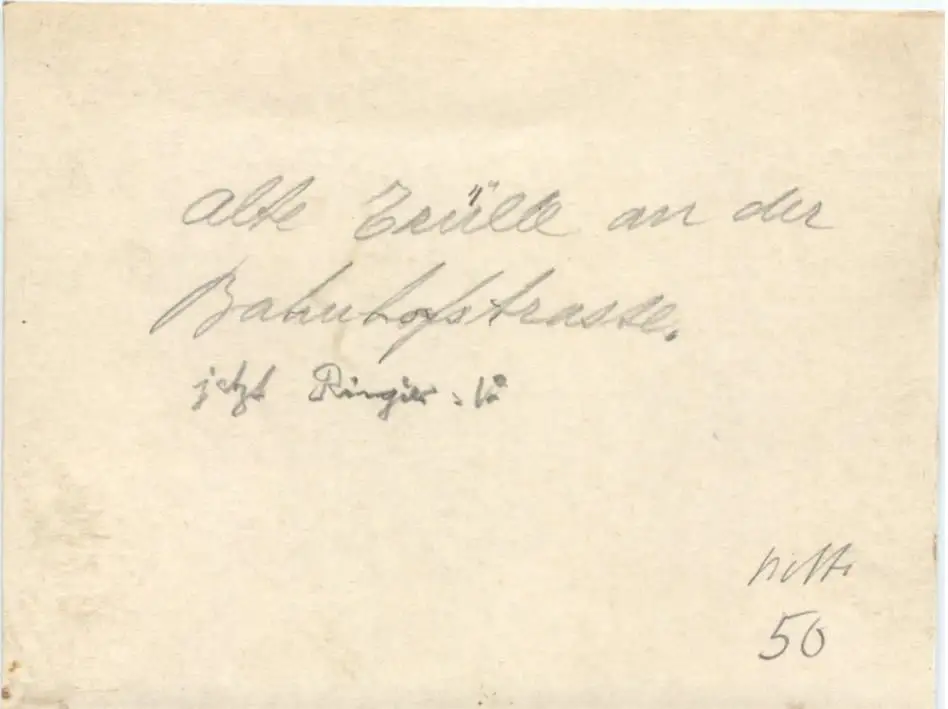 alte Trülle an der
Bahnhofstrasse.
jetzt Ringier
50